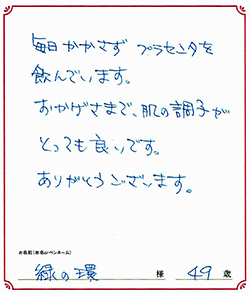 毎日かかさず プラセンタを
飲んでいます。
おかげさまで、肌の調子が
とっても良いです。
ありがとうございます。
お名前(本名orペンネーム)
緑の環 様 49 歳